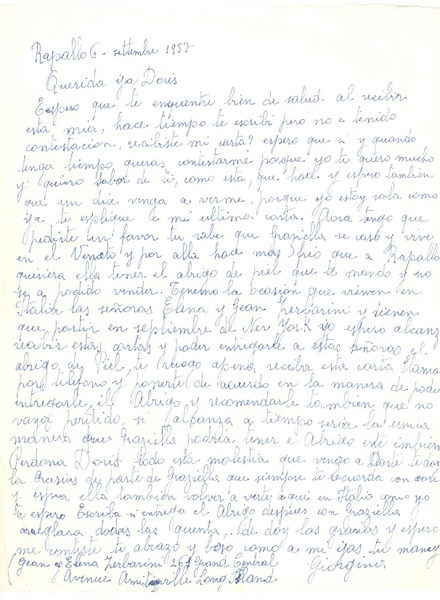 Rapallo 6 - settembre 1957
Querida ija Doris
Espero que te encuentre bien de salud al recibir
esta mia, hace tiempo te escribi pero no e tenido
contestacion, recibiste mi carta? espero que si y quando
tenga tiempo queras contestarme porque yo te quiero mucho
y quiero saber de ti, como esta, que hace y espero tambien
que un dia venga a verme, porque yo estoy sola como
ya te esplique e mi ultima carta. Aora tengo que
pedirte un favor tu sabe que Graziella se casó y vive
en el Veneto y por alla hace mas frio que a Rapallo
quisiera ella tener el abrigo de piel que te mando y no
se a podido vender. Tenemo la ocasión que vienen en
Italia las señoras Elena y Gean Zerbarini y tienen
que partir en septiembre de New York yo espero alcanz
recibir estas cartas y poder entregarle a estas señoras el
abrigo de Piel, te ruego apena reciba esta carta llama
por telefono y ponerte de acuerdo en la manera de pode
entregarle, il Abrigo, y recomendarle tambien que no
vaya perdido, si alcanza a tiempo seria la unica
manera que Graziella podria tener e Abrigo este
Perdona Doris todo esta molestia que vengo a Darte te doy
la Grasias de parte de Graziella que siempre te recuerda con
y espera ella tambien volver a verte aqui in Italia como yo
te espero Escriba si entrego el Abrigo despues con Graziella
areglara todas las quenta, te doy las gracias y espero
me conteste te abrazo y beso como a mi ija tu mamy
(Gean e Elena Zerbarini 267 Grand Central Giorgina
Avenue Amityville Long Island